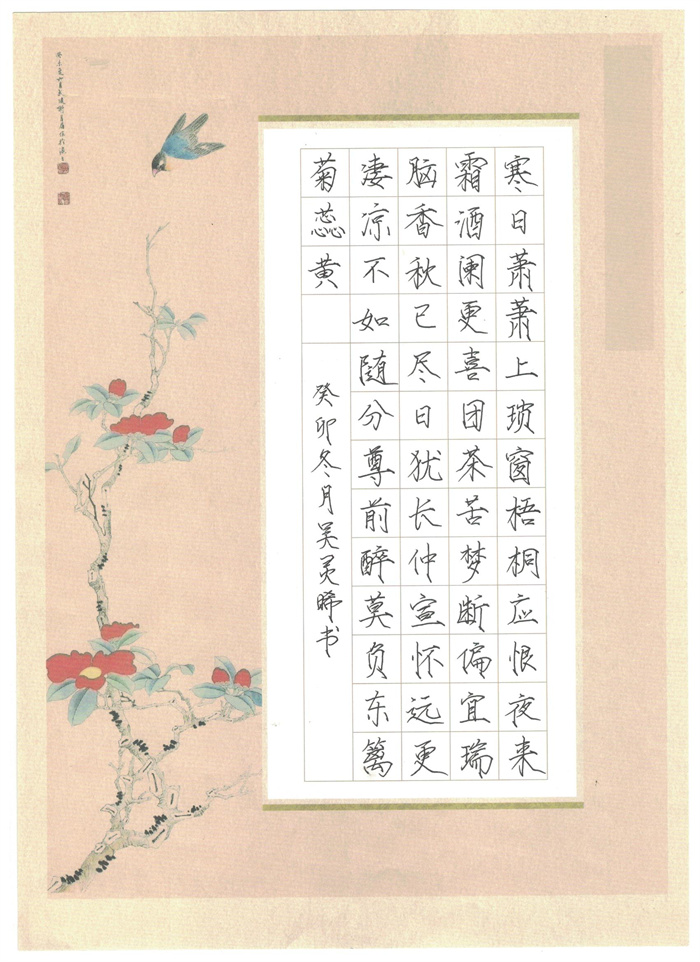 寒日萧萧上琐窗梧桐应恨夜来
霜酒阑更喜团茶苦梦断偏宜瑞
脑香秋已尽日犹长仲宣怀远更
凄凉不如随分尊前醉莫负东篱
菊蕊黄
癸卯冬月吴灵晞书